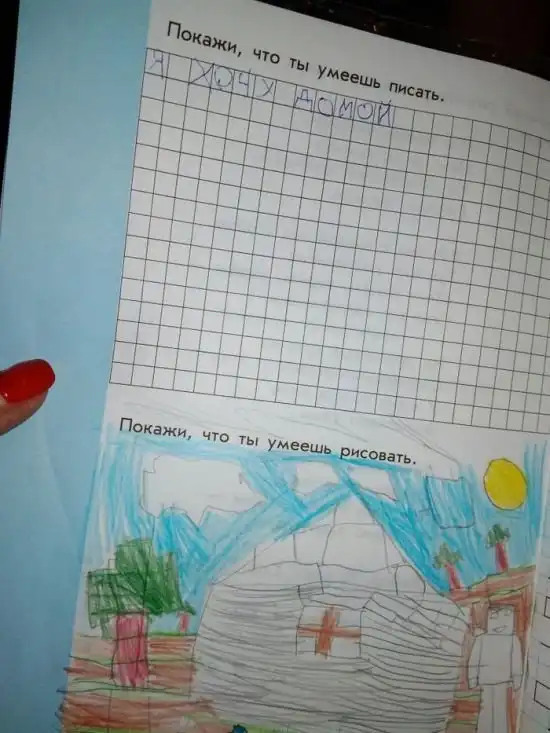 Покажи, что ты умеешь писать.
Я ХОЧУ ДОМОЙ
Покажи, что ты умеешь рисовать.